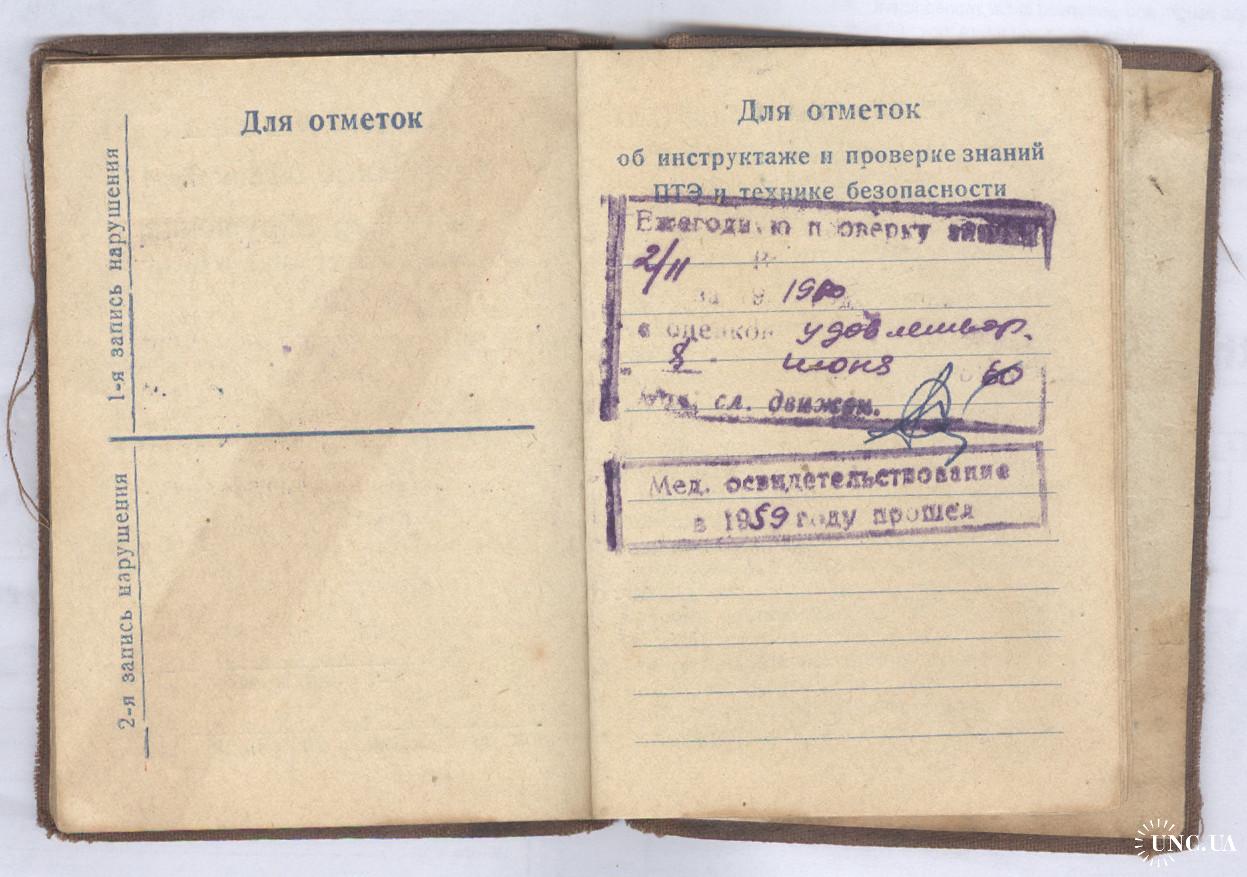 Для отметок
1-я запись нарушения
2-я запись нарушения
Для отметок
об инструктаже и проверке знаний
ПТЭ и технике безопасности
Ежегодную проверку
2/II
за 19
с оценкой удовлетвор.
8 июня 60
сл. движен.
Мед. освидетельствование
в 1959 году прошел
UNC.UA